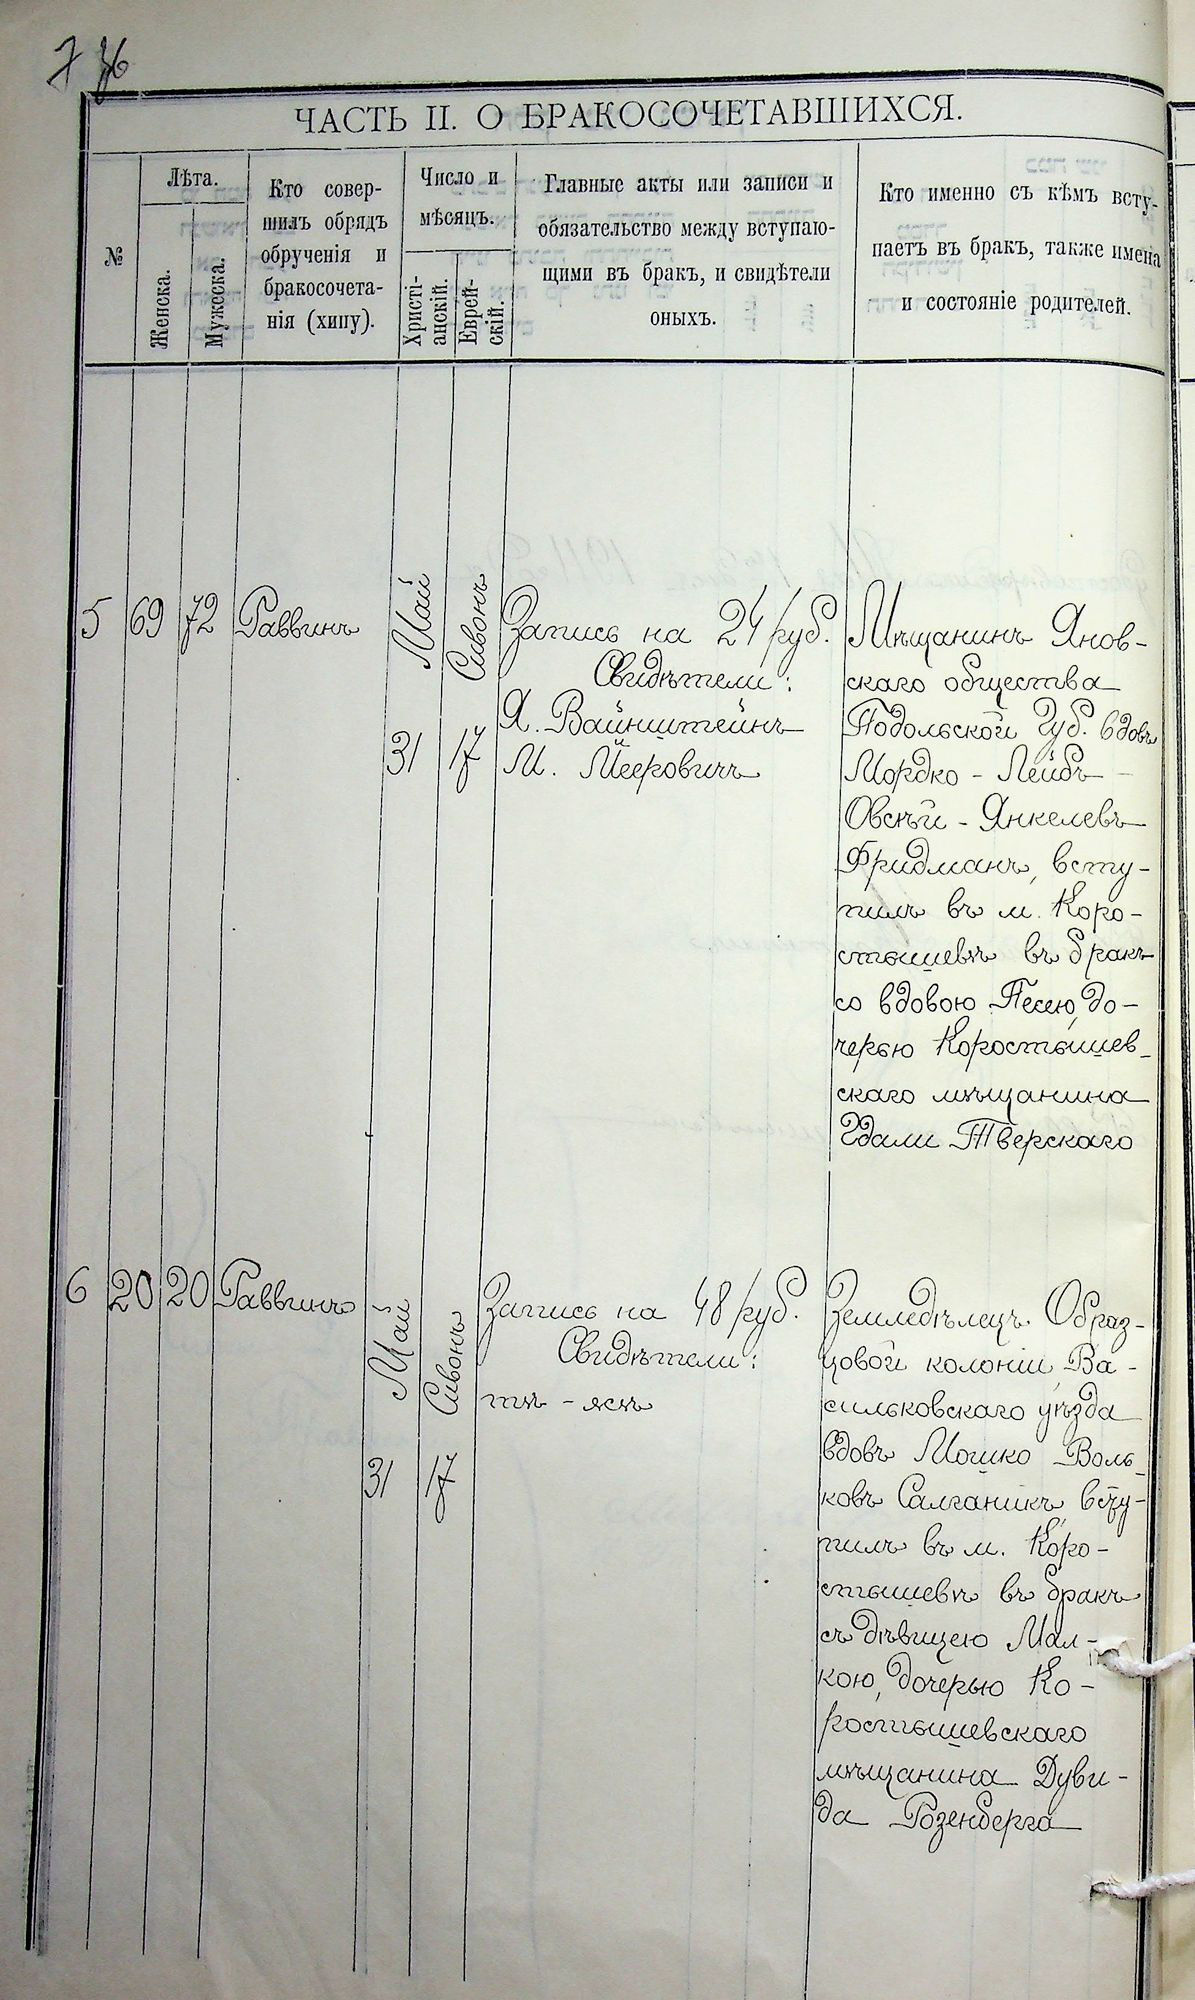 7 36
ЧАСТЬ II. О БРАКОСОЧЕТАВШИХСЯ.
№
Лѣта.
Женска.
Мужеска.
Кто совер-
шилъ обрядъ
обрученія и
бракосочета-
нія (хипу).
Число и
мѣсяцъ.
Христі-
анскій.
Еврей-
скій.
Главные акты или записи и
обязательство между вступаю-
щими въ бракъ, и свидѣтели
оныхъ.
Кто именно съ кѣмъ всту-
паетъ въ бракъ, также имена
и состояніе родителей.
5
69
72
Раввинъ
Май
31
Сивонъ
17
Запись на 24 руб.
Свидѣтели:
Я. Вайнштейнъ
М. Мееровичъ
Мѣщанинъ Янов-
скаго общества
Подольской Губ. вдовъ
Мордко-Лейбъ-
Овсѣй-Янкелевъ
Фридманъ, всту-
пилъ въ м. Коро-
стышевѣ въ бракъ
со вдовою Песею, до-
черью Коростышев-
скаго мѣщанина
Гдали Тверскаго
6
20
20
Раввинъ
Май
31
Сивонъ
17
Запись на 48 руб.
Свидѣтели:
тѣ-жеъ
Земледѣлецъ Образ-
цовой колоніи, Ва-
сильковскаго уѣзда
вдовъ Мошко Воль-
ковъ Салганикъ, всту-
пилъ въ м. Коро-
стышевѣ въ бракъ
съ дѣвицею Мал-
кою, дочерью Ко-
ростышевскаго
мѣщанина Дуви-
да Розенберга